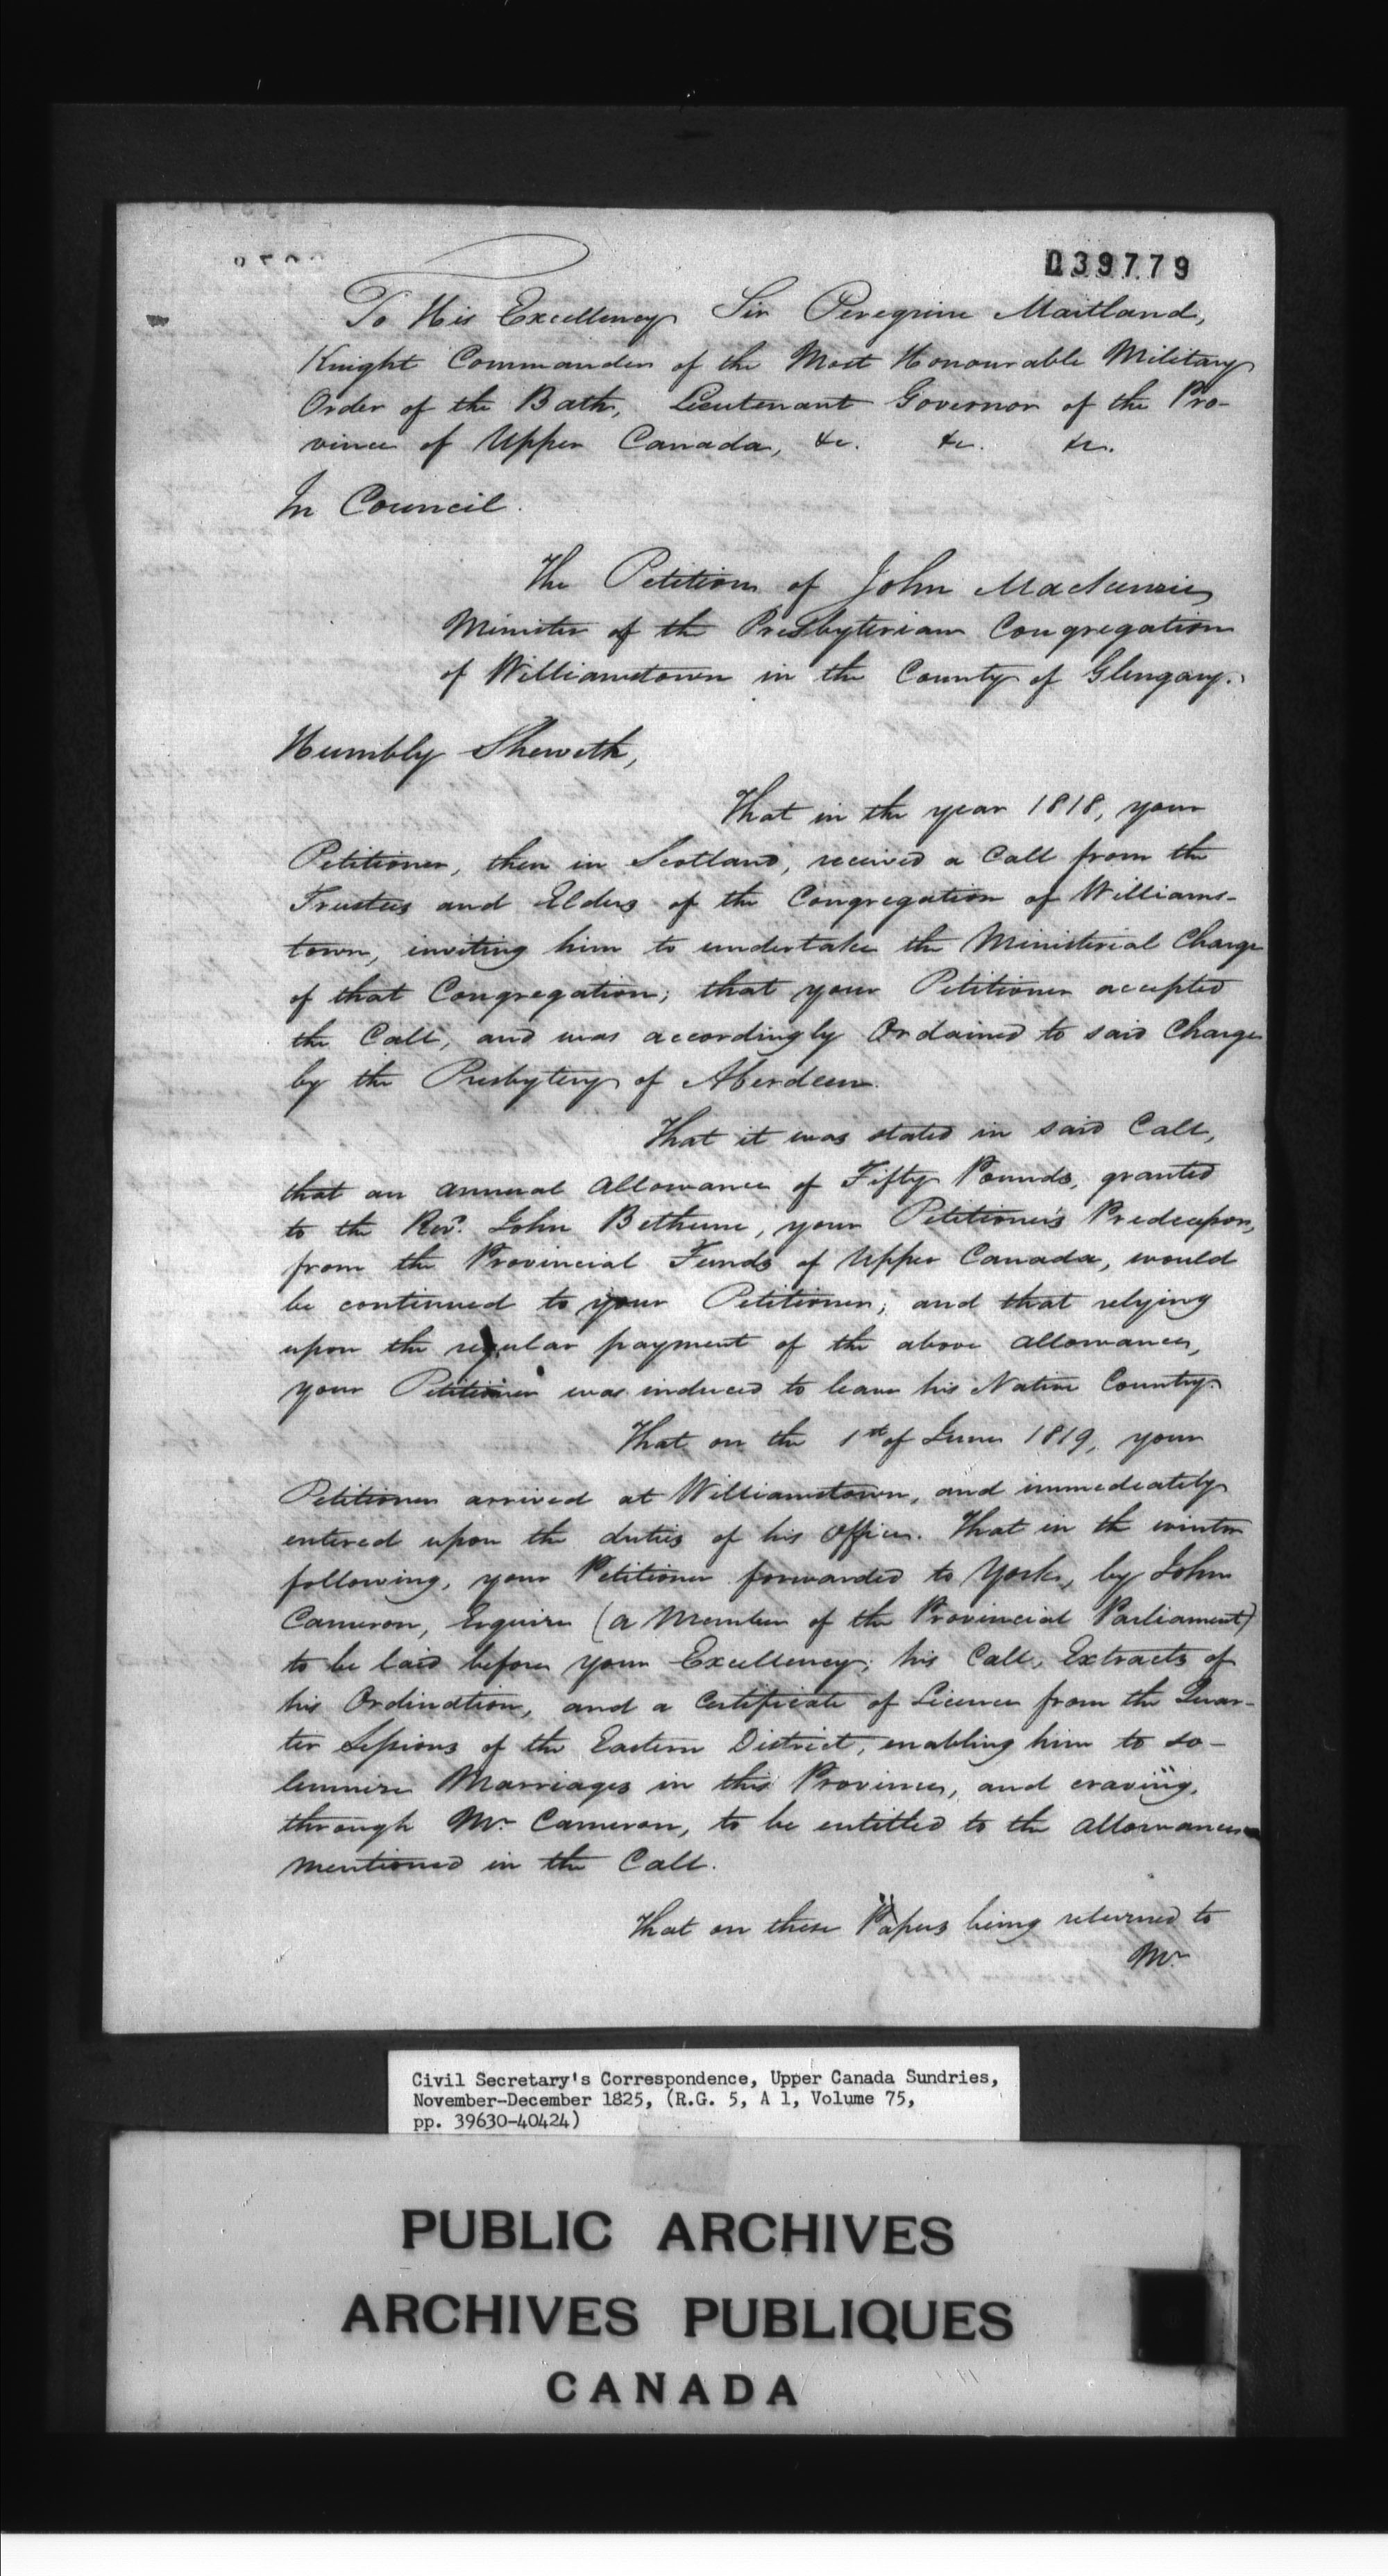 039779
To His Excellency Sir Peregrine Maitland,
Knight Commander of the Most Honourable Military
Order of the Bath, Lieutenant Governor of the Pro-
vince of Upper Canada, &c. &c. &c.
In Council.
The Petition of John Mackenzie
Minister of the Presbyterian Congregation
of Williamstown in the County of Glengary.
Humbly Sheweth,
That in the year 1818, your
Petitioner, then in Scotland, received a Call from the
Trustees and Elders of the Congregation of Williams-
town, inviting him to undertake the Ministerial Charge
of that Congregation; that your Petitioner accepted
the Call, and was accordingly Ordained to said Charge
by the Presbytery of Aberdeen.
That it was stated in said Call,
that an annual allowance of Fifty Pounds, granted
to the Revd. John Bethune, your Petitioner's Predecessor,
from the Provincial Funds of Upper Canada, would
be continued to your Petitioner; and that relying
upon the regular payment of the above allowance,
your Petitioner was induced to leave his Native Country.
That on the 1st of June 1819, your
Petitioner arrived at Williamstown, and immediately
entered upon the duties of his Office. That in the winter
following, your Petitioner forwarded to York, by John
Cameron, Esquire (a Member of the Provincial Parliament)
to be laid before your Excellency; his Call, Extracts of
his Ordination, and a Certificate of Licence from the Quar-
ter Sessions of the Eastern District, enabling him to so-
lemnize Marriages in this Province, and craving,
through Mr. Cameron, to be entitled to the allowance
mentioned in the Call.
That on these Papers being returned to
Mr.
Civil Secretary's Correspondence, Upper Canada Sundries,
November-December 1825, (R.G. 5, A 1, Volume 75,
pp. 39630-40424)
PUBLIC ARCHIVES
ARCHIVES PUBLIQUES
CANADA